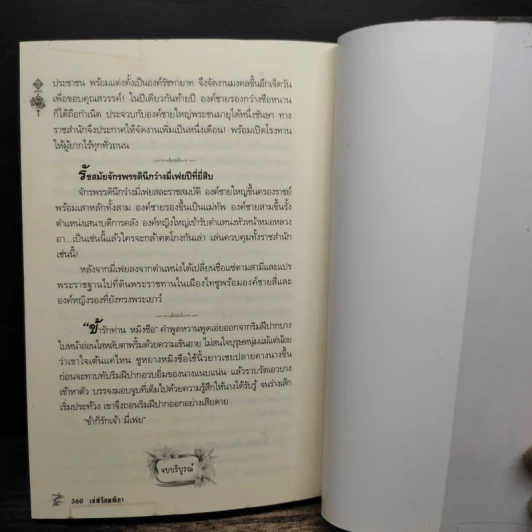 ประชาชน พร้อมแต่งตั้งเป็นองค์รัชทายาท จึงจัดงานมงคลขึ้นอีกเจ็ดวัน
เพื่อขอบคุณสวรรค์! ในปีเดียวกันท้ายปี องค์ชายรองกว่างชือหนาน
ก็ได้ถือกำเนิด ประจวบกับองค์ชายใหญ่พระชนมายุได้หนึ่งชันษา ทาง
ราชสำนักจึงประกาศให้จัดงานเพิ่มเป็นหนึ่งเดือน! พร้อมเปิดโรงทาน
ให้ผู้ยากไร้ทุกหัวถนน
รัชสมัยจักรพรรดินีกว่างมี่เฟยปีที่ยี่สิบ
จักรพรรดินีกว่างมี่เฟยสละราชสมบัติ องค์ชายใหญ่ขึ้นครองราชย์
พร้อมเสาหลักทั้งสาม องค์ชายรองขึ้นเป็นแม่ทัพ องค์ชายสามขึ้นรั้ง
ตำแหน่งเสนาบดีการคลัง องค์หญิงใหญ่เข้ารับตำแหน่งหัวหน้าหมอหลวง
อา...เป็นเช่นนี้แล้วใครจะกล้าคดโกงกันเล่า เล่นควบคุมทั้งราชสำนัก
เช่นนี้!
หลังจากมี่เฟยลงจากตำแหน่งได้เปลี่ยนชื่อแซ่ตามสามีและแปร
พระราชฐานไปที่ดินพระราชทานในเมืองไทซูพร้อมองค์ชายสี่และ
องค์หญิงรองที่ยังทรงพระเยาว์
"ข้ารักท่าน หมิงซือ" คำพูดหวานพูดเอ่ยออกจากริมฝีปากบาง
ใบหน้าอ่อนใสหลับตาพริ้มด้วยความเขินอาย ไม่สนใจบุรุษหนุ่มแม้แต่น้อย
ว่าเขาใจเต้นแค่ไหน ซูหยางหมิงซือใช้นิ้วยาวเชยปลายคางนางขึ้น
ก่อนจะทาบทับริมฝีปากอวบอิ่มของนางแนบแน่น แล้วรวบรัดเอวบาง
เข้าหาตัว บรรจงมอบจูบที่เต็มไปด้วยความรู้สึกให้นางได้รับรู้ จนร่างเล็ก
เริ่มประท้วง เขาจึงถอนริมฝีปากออกอย่างเสียดาย
"ข้าก็รักเจ้า มี่เฟย"
จบบริบูรณ์
360